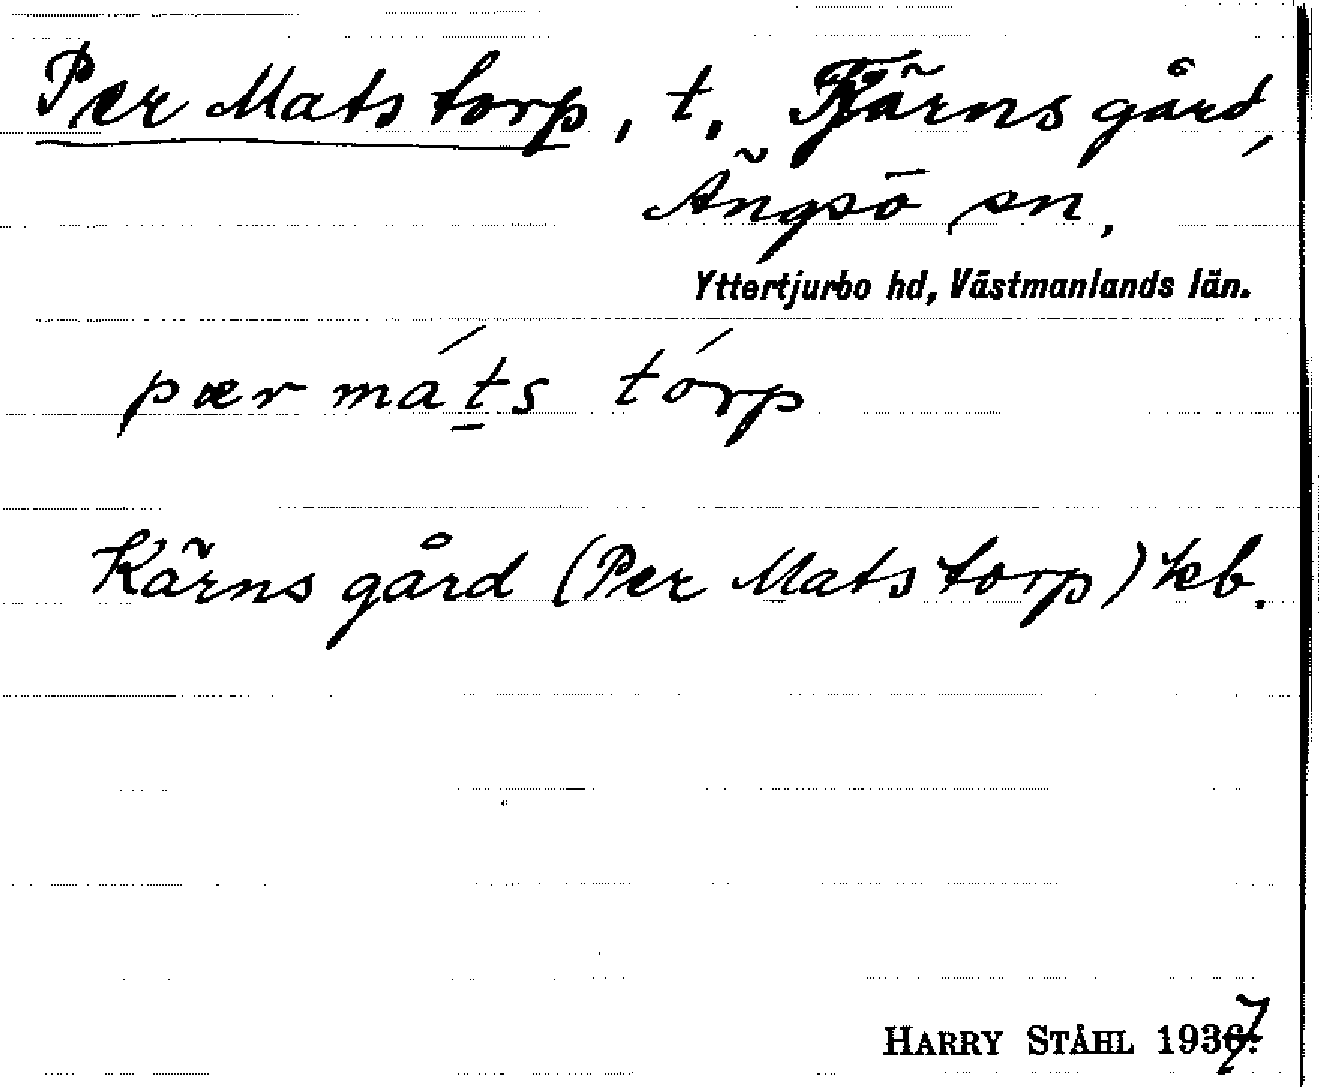 Per Mats torp, t. Tjärns gård,
Ängsö sn,
Yttertjurbo hd, Västmanlands län.
pær máts tórp
Kärns gård (Per Mats torp) kb.
HARRY STÅHL 1937